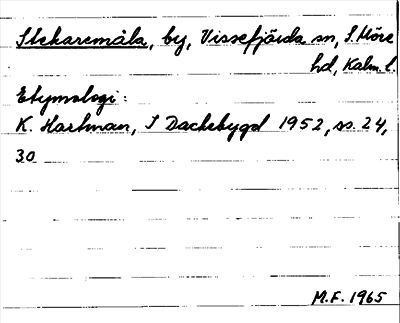 Stekaremåla, by, Vissefjärda sn, S. Möre
hd, Kalm. l.
Etymologi:
K. Hartman, I Dackebygd 1952, ss. 24,
30
M.F. 1965